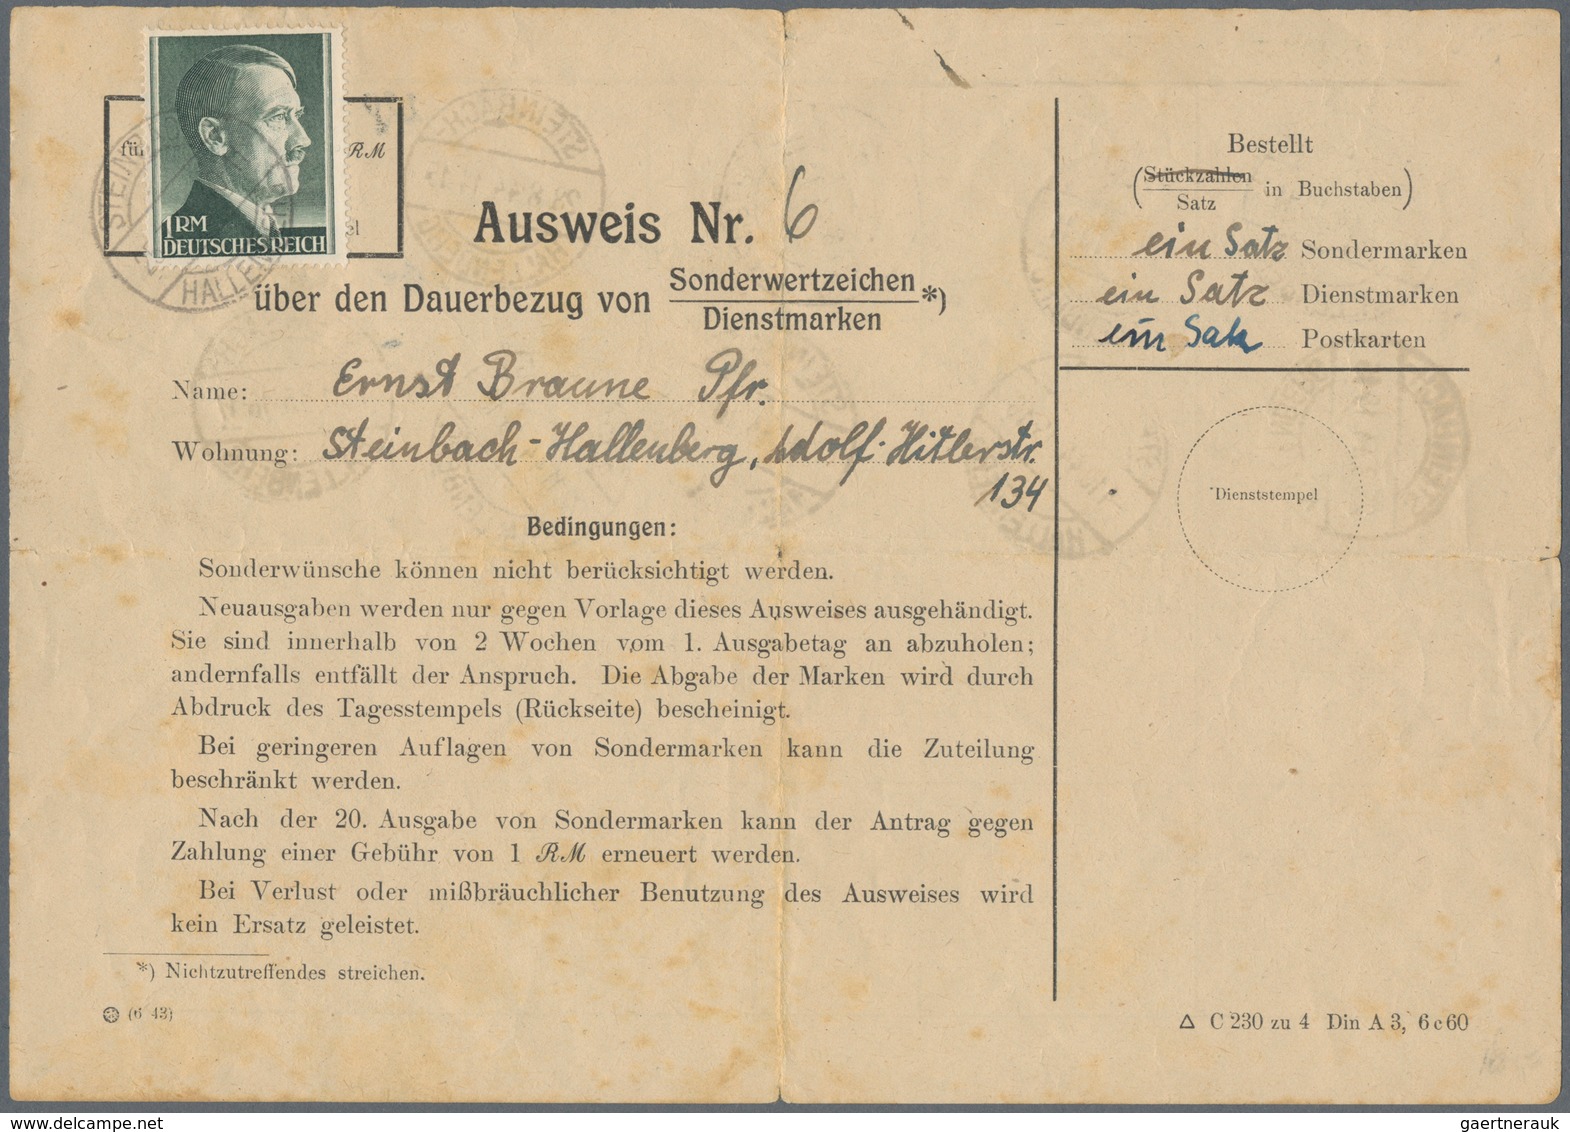 für RM
1 RM
DEUTSCHES REICH
STEINBACH-
HALLENBERG
Ausweis Nr. 6
über den Dauerbezug von Sonderwertzeichen *)
Dienstmarken
Name: Ernst Braune Pfr.
Wohnung: Steinbach-Hallenberg, Adolf-Hitlerstr.
134
Bestellt
(Stückzahlen in Buchstaben)
Satz
ein Satz Sondermarken
ein Satz Dienstmarken
ein Satz Postkarten
Dienststempel
Bedingungen:
Sonderwünsche können nicht berücksichtigt werden.
Neuausgaben werden nur gegen Vorlage dieses Ausweises ausgehändigt.
Sie sind innerhalb von 2 Wochen vom 1. Ausgabetag an abzuholen;
andernfalls entfällt der Anspruch. Die Abgabe der Marken wird durch
Abdruck des Tagesstempels (Rückseite) bescheinigt.
Bei geringeren Auflagen von Sondermarken kann die Zuteilung
beschränkt werden.
Nach der 20. Ausgabe von Sondermarken kann der Antrag gegen
Zahlung einer Gebühr von 1 RM erneuert werden.
Bei Verlust oder mißbräuchlicher Benutzung des Ausweises wird
kein Ersatz geleistet.
*) Nichtzutreffendes streichen.
(6 43)
Δ C 230 zu 4 Din A 3, 6 c 60
gaertnerauk